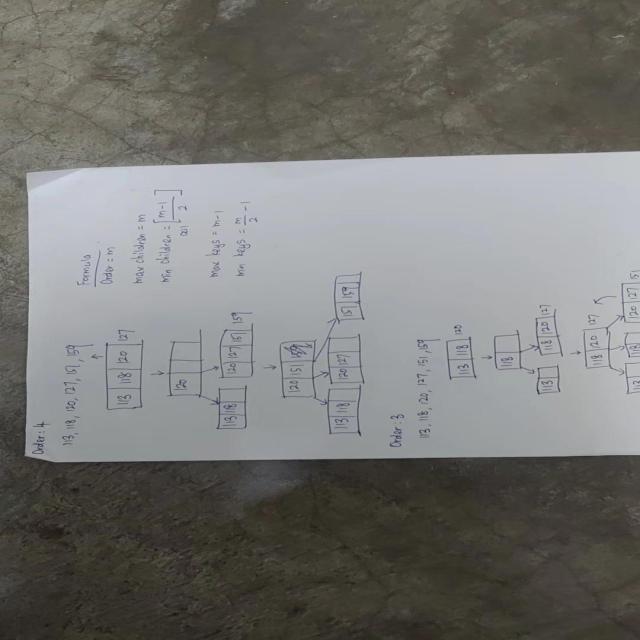 Order: 4
113, 118, 120, 127, 151, 159
113 118 120 127
120
113 118 120 127 151 159
120 151
113 118 120 127 151 159
Formula
Order = m
max children = m
min children = [m-1/2]
max keys = m-1
min keys = m/2 -1
Order: 3
113, 118, 120, 127, 151, 159
113 118 120
118
113 118 120 127
118 120 127
120 127 151